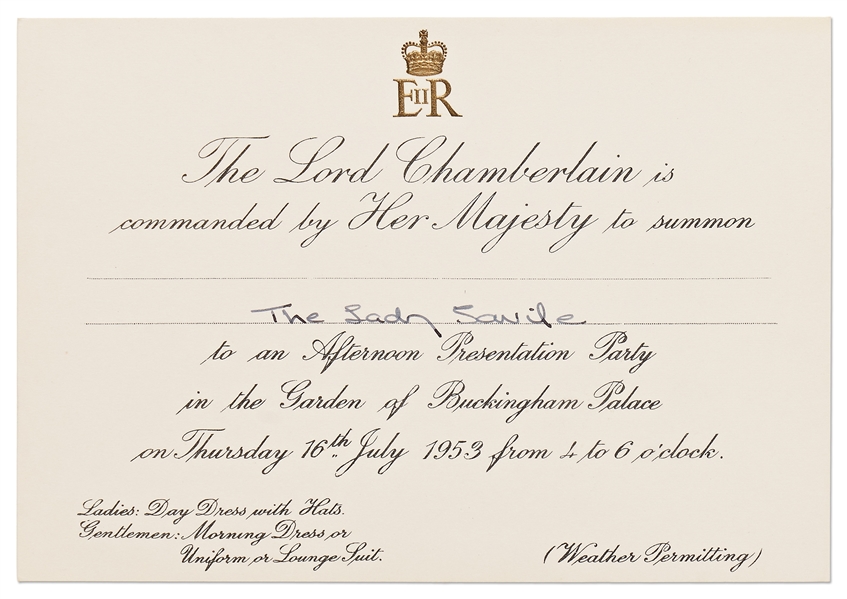 EIIR
The Lord Chamberlain is
commanded by Her Majesty to summon
The Lady Savile
to an Afternoon Presentation Party
in the Garden of Buckingham Palace
on Thursday 16th July 1953 from 4 to 6 o'clock.
Ladies: Day Dress with Hats.
Gentlemen: Morning Dress or
Uniform or Lounge Suit.
(Weather Permitting)